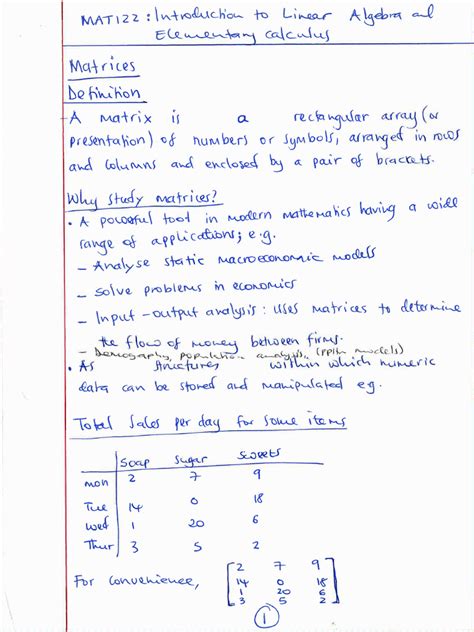 MAT122: Introduction to Linear Algebra and
Elementary calculus
Matrices
Definition
- A matrix is a rectangular array (or
presentation) of numbers or symbols, arranged in rows
and columns and enclosed by a pair of brackets.
Why study matrices?
• A powerful tool in modern mathematics having a wide
range of applications; e.g.
- Analyse static macroeconomic models
- Solve problems in economics
- Input-output analysis: Uses matrices to determine
the flow of money between firms.
- Demography, population analysis, (models)
• As structures within which numeric
data can be stored and manipulated eg.
Total Sales per day for some items
Soap Sugar Sweets
mon 2 7 9
Tue 14 0 18
Wed 1 20 6
Thur 3 5 2
For convenience, [2 7 9
14 0 18
1 20 6
3 5 2]
1